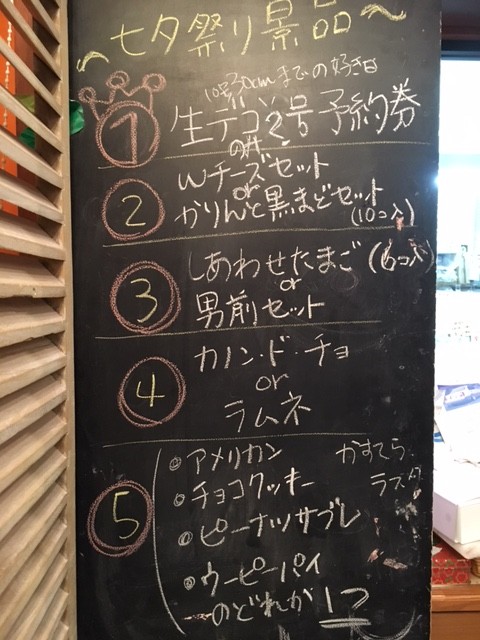 〜七夕祭り景品〜
までの好き
1 生デコ2号予約券
2 Wチーズセット
or
かりんと黒まどセット
(10コ入)
3 しあわせたまご(6コ入)
or
男前セット
4 カノン・ド・チョ
or
ラムネ
5 ・アメリカン かすてら
・チョコクッキー ラスク
・ピーナツサブレ
・ウーピーパイ
のどれか1つ